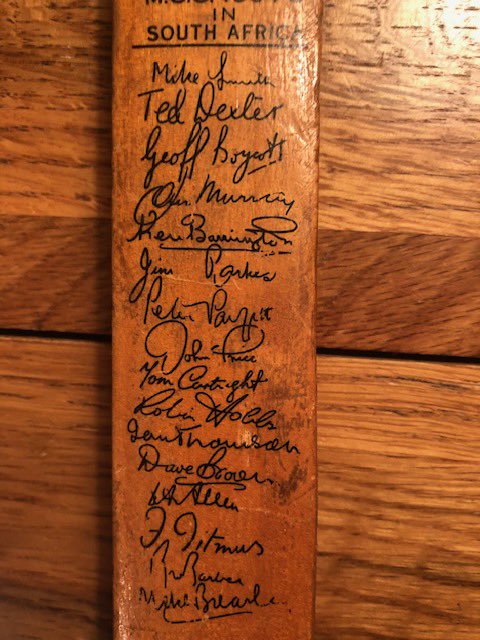 IN
SOUTH AFRICA
Mike Smith
Ted Dexter
Geoff Boycott
John Murray
Ken Barrington
Jim Parks
Peter Parfitt
John Price
Tom Cartwright
Robin Hobbs
Ian Thomson
Dave Brown
DA Allen
F Titmus
R Barber
Mike Brearley